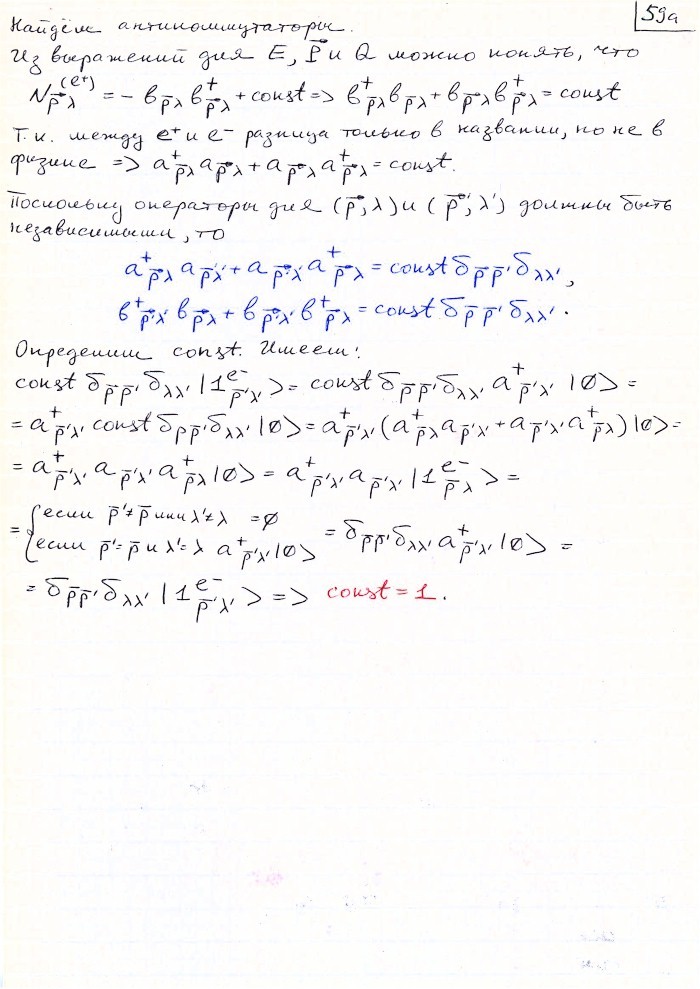 59а
Найдём антикоммутаторы.
Из выражений для E, P⃗ и Q можно понять, что
N_{p⃗λ}^{(e⁺)} = − в_{p⃗λ} в⁺_{p⃗λ} + const => в⁺_{p⃗λ} в_{p⃗λ} + в_{p⃗λ} в⁺_{p⃗λ} = const
Т.к. между e⁺ и e⁻ разница только в названии, но не в
физике => a⁺_{p⃗λ} a_{p⃗λ} + a_{p⃗λ} a⁺_{p⃗λ} = const.
Поскольку операторы для (p⃗, λ) и (p⃗', λ') должны быть
независимыми, то
a⁺_{p⃗λ} a_{p⃗'λ'} + a_{p⃗'λ'} a⁺_{p⃗λ} = const δ_{p⃗p⃗'} δ_{λλ'},
в⁺_{p⃗'λ'} в_{p⃗λ} + в_{p⃗'λ'} в⁺_{p⃗λ} = const δ_{p⃗p⃗'} δ_{λλ'}.
Определим const. Имеем:
const δ_{p⃗p⃗'} δ_{λλ'} |1^{e⁻}_{p⃗'λ'}> = const δ_{p⃗p⃗'} δ_{λλ'} a⁺_{p⃗'λ'} |0> =
= a⁺_{p⃗'λ'} const δ_{p⃗p⃗'} δ_{λλ'} |0> = a⁺_{p⃗'λ'} (a⁺_{p⃗λ} a_{p⃗'λ'} + a_{p⃗'λ'} a⁺_{p⃗λ}) |0> =
= a⁺_{p⃗'λ'} a_{p⃗'λ'} a⁺_{p⃗λ} |0> = a⁺_{p⃗'λ'} a_{p⃗'λ'} |1^{e⁻}_{p⃗λ}> =
= { если p⃗' ≠ p⃗ или λ' ≠ λ = 0
если p⃗' = p⃗ и λ' = λ a⁺_{p⃗'λ'} |0> = δ_{p⃗p⃗'} δ_{λλ'} a⁺_{p⃗'λ'} |0> =
= δ_{p⃗p⃗'} δ_{λλ'} |1^{e⁻}_{p⃗'λ'}> => const = 1.